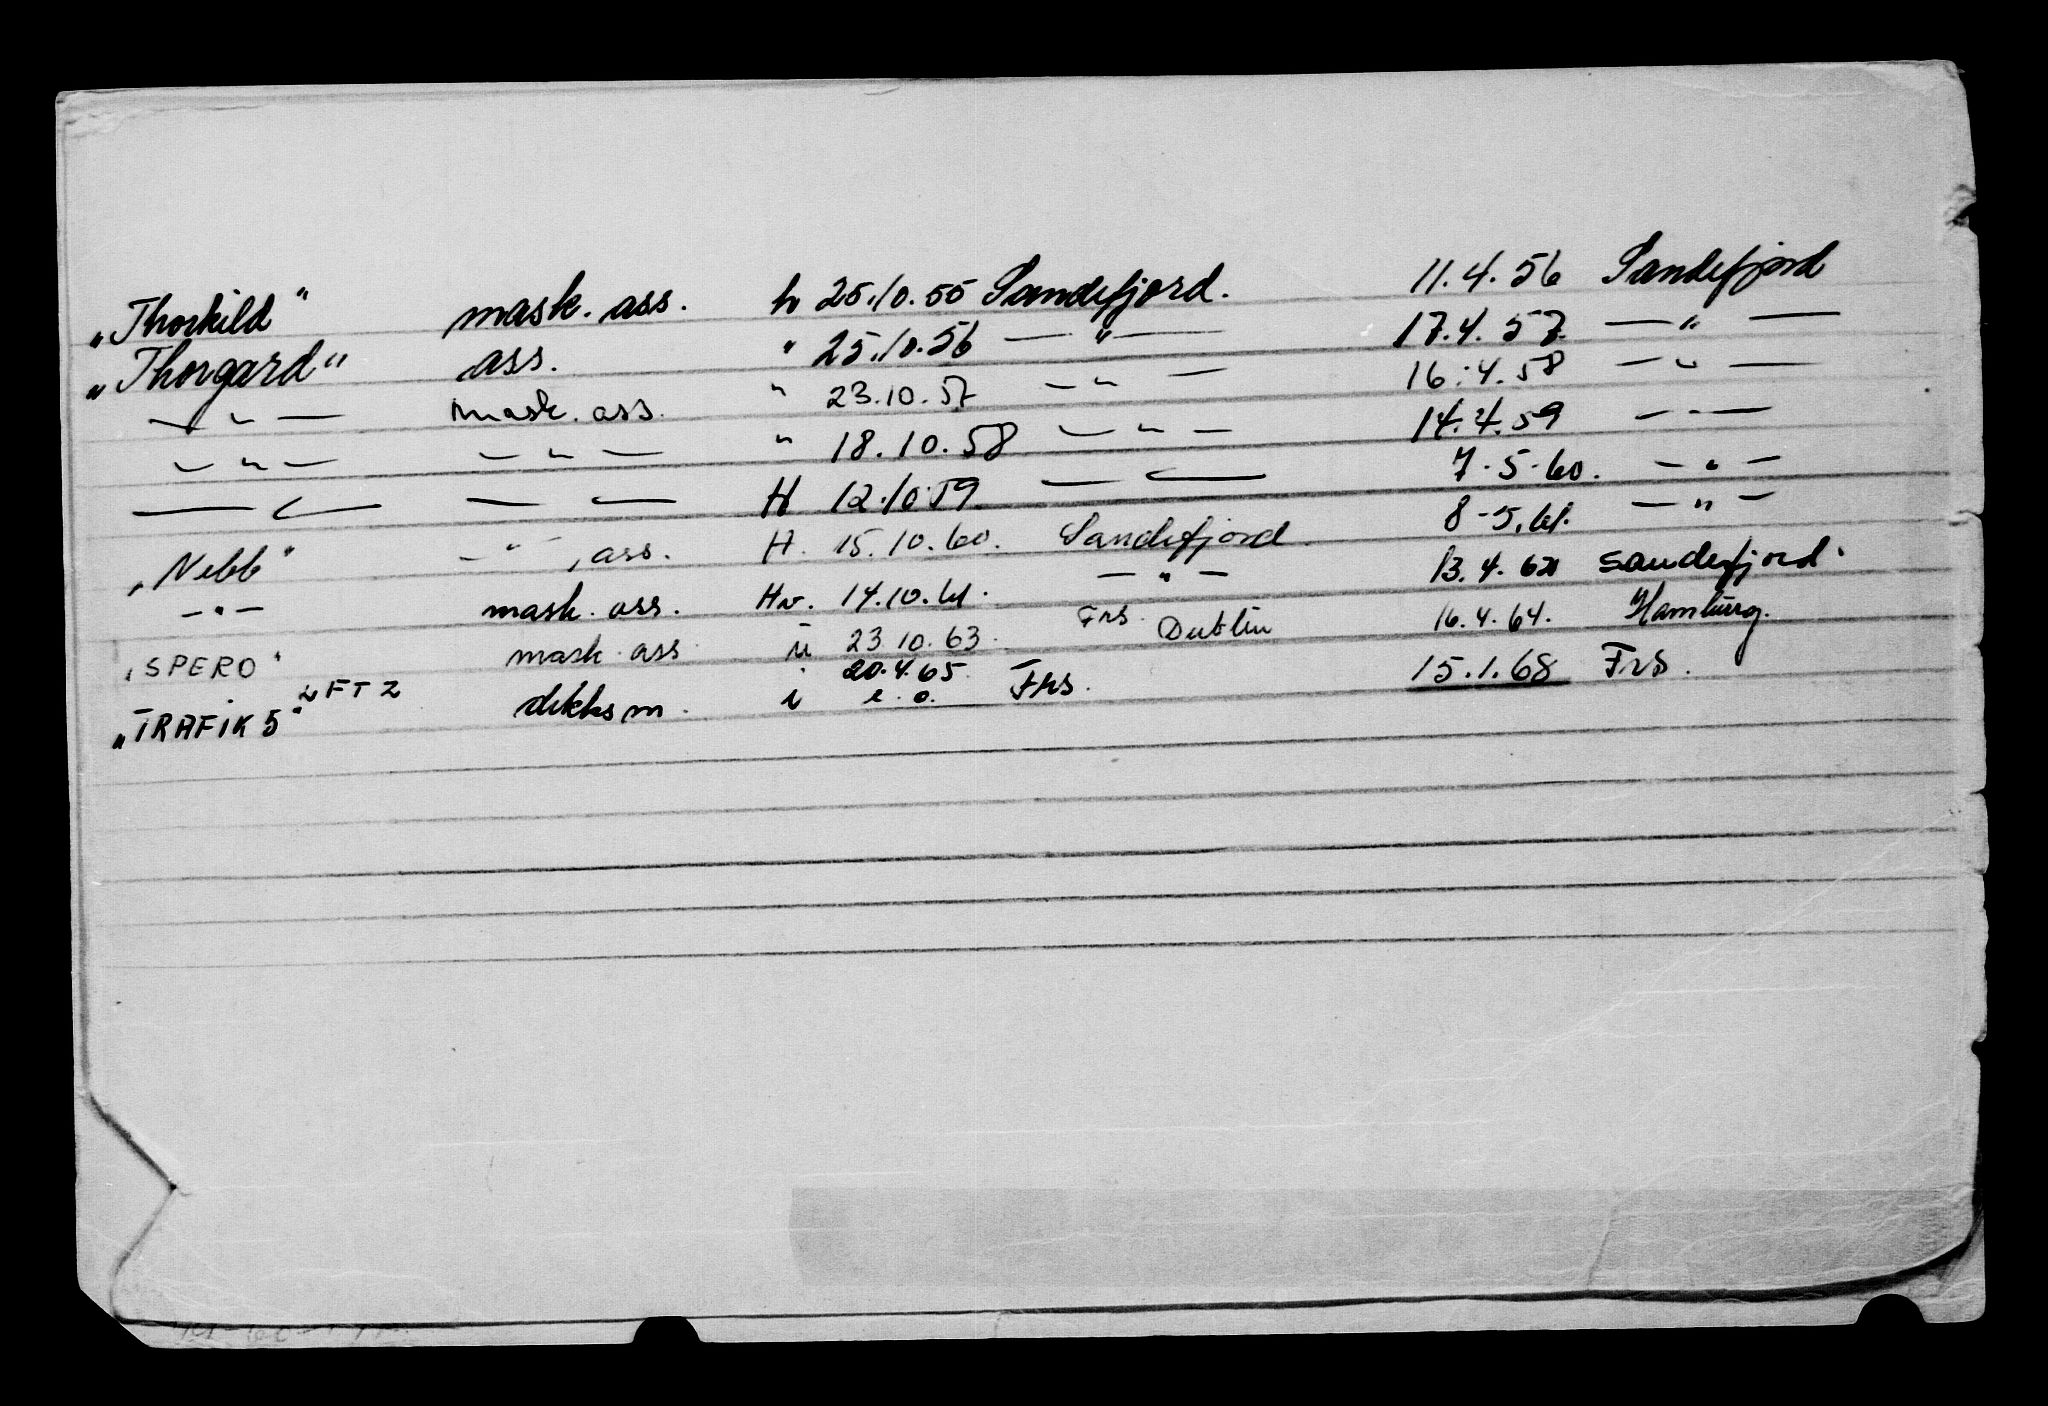 „Thorkild" mask. ass. h 25.10.55 Sandefjord. 11.4.56 Sandefjord
„Thorgard" ass. " 25.10.56 — " — 17.4.57 — " —
— " — mask. ass. " 23.10.57 — " — 16.4.58 — " —
— " — — " — " 18.10.58 — " — 14.4.59 — " —
— " — — " — H 12.10.59. — " — 7-5-60. — " —
„Nebb" — " —, ass. H. 15.10.60. Sandefjord. 8-5.61. — " —
— " — mask. ass. Hv. 14.10.61. — " — 13.4.62 Sandefjord.
„SPERO" mask. ass u 23.10.63. Frs. Dublin 16.4.64. Hamburg.
„TRAFIK 5" FT 2 dekksm. i 20.4.65. e.o. Frs. 15.1.68 Frs.